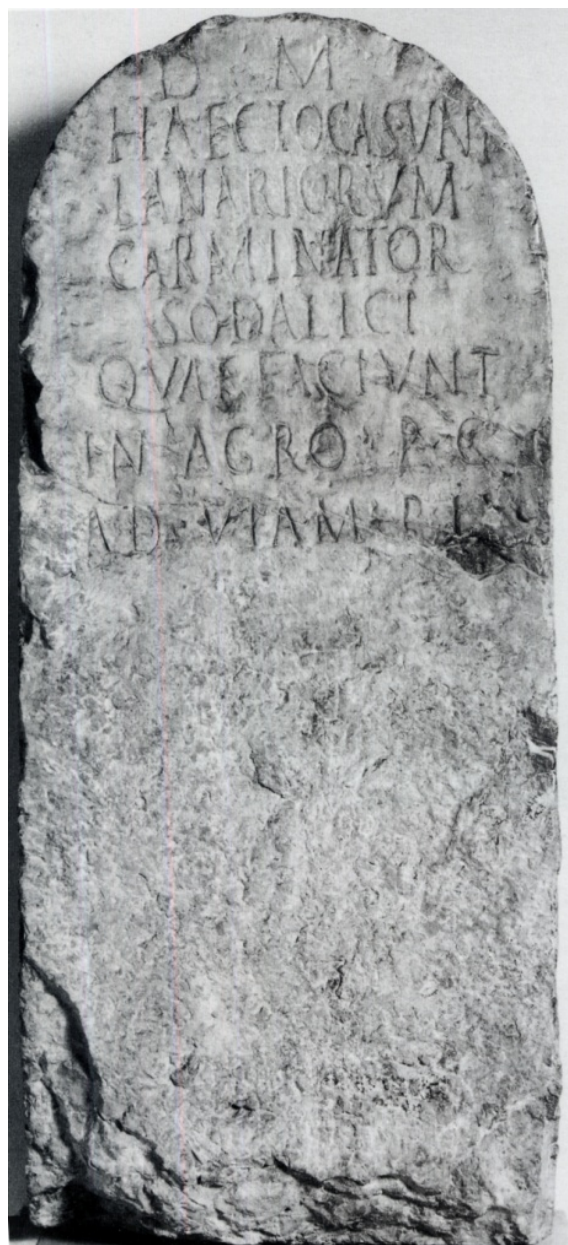 D M
HAEC LOCA SUNT
LANARIORVM
CARMINATOR
SODALICI
QVAE FACIVNT
IN AGRO P C
AD VIAM P L